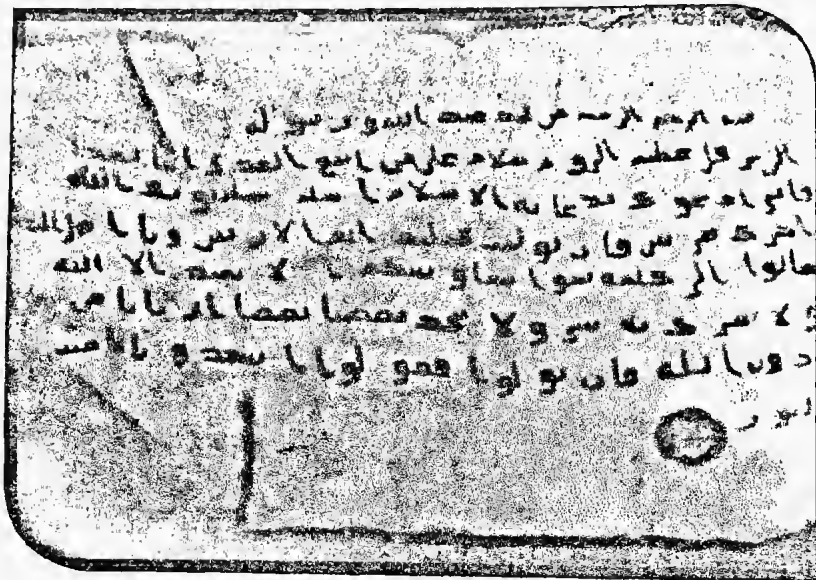 الرحمن الرحيم من محمد عبد الله ورسوله
الى هرقل عظيم الروم سلام على من اتبع الهدى اما بعد
فانى ادعوك بدعاية الاسلام اسلم تسلم يوتك الله
اجرك مرتين فان توليت فعليك اثم الاريسين ويا اهل
تعالوا الى كلمة سوا بيننا وبينكم ان لا نعبد الا الله
ولا نشرك به شيا ولا يتخذ بعضنا بعضا اربابا من
دون الله فان تولوا فقولوا اشهدوا بانا مسـ
لمون